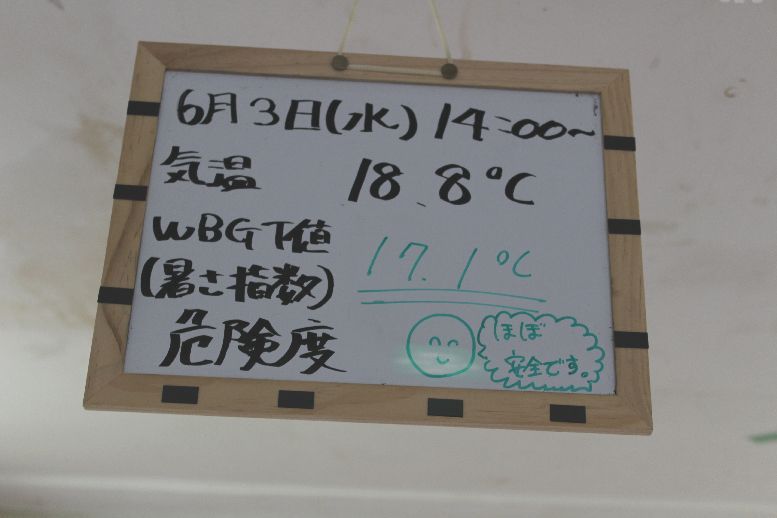 6月3日(水) 14:00~
気温 18.8℃
WBGT値
(暑さ指数) 17.1℃
危険度
ほぼ
安全です。